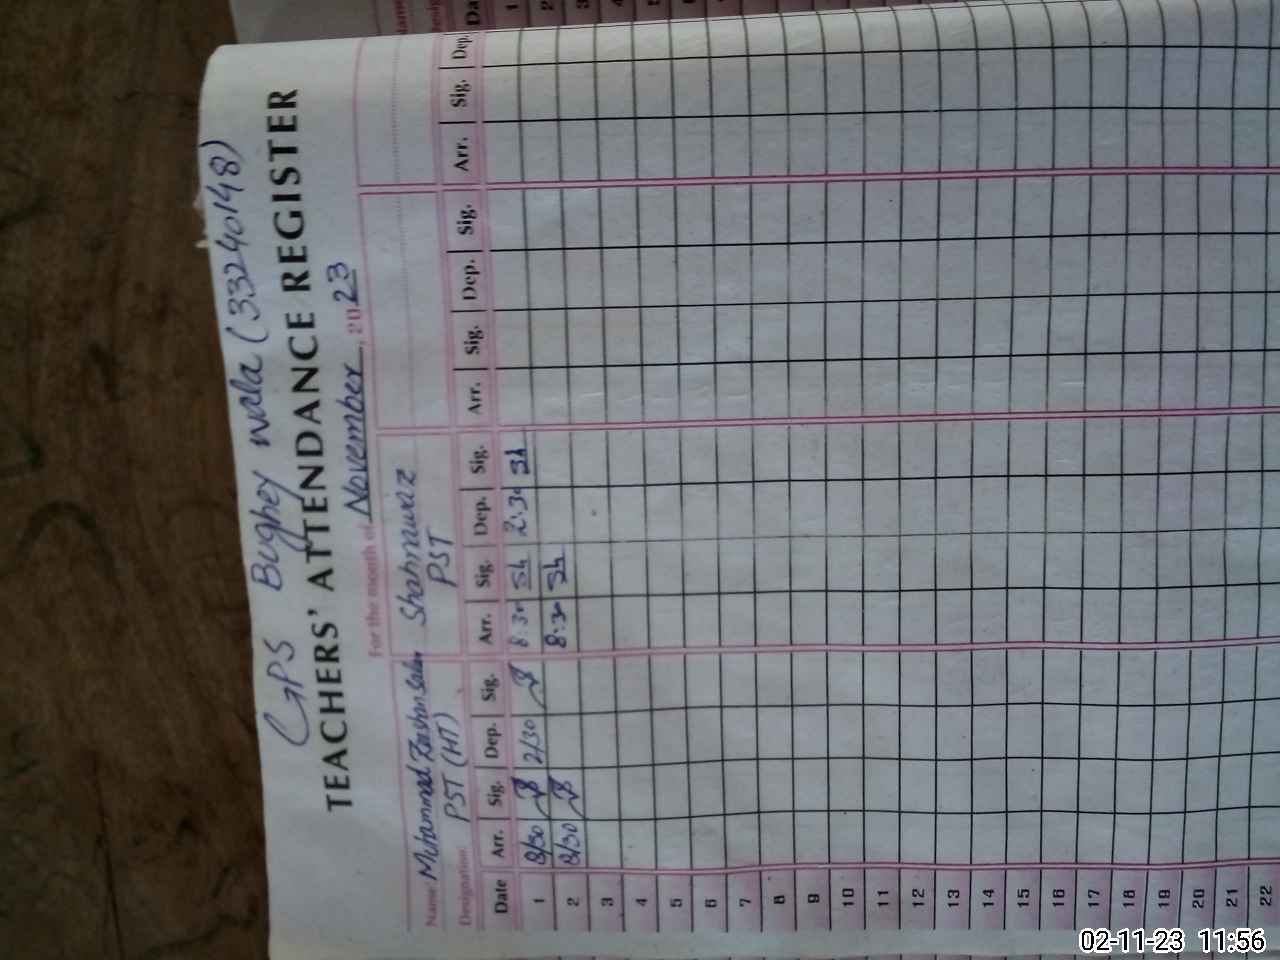 GPS Bughey wala (33240148)
TEACHERS' ATTENDANCE REGISTER
For the month of November, 2023
Name: Muhammad Zeeshan Salim Shahnwaz
Designation PST (HT) PST
Date Arr. Sig. Dep. Sig. Arr. Sig. Dep. Sig. Arr. Sig. Dep. Sig. Arr. Sig. Dep.
1 8/30 2/30 8:30 Sh 2:30 Sh
2 8/30 8:30 Sh
3
4
5
6
7
8
9
10
11
12
13
14
15
16
17
18
19
20
21
22
02-11-23 11:56